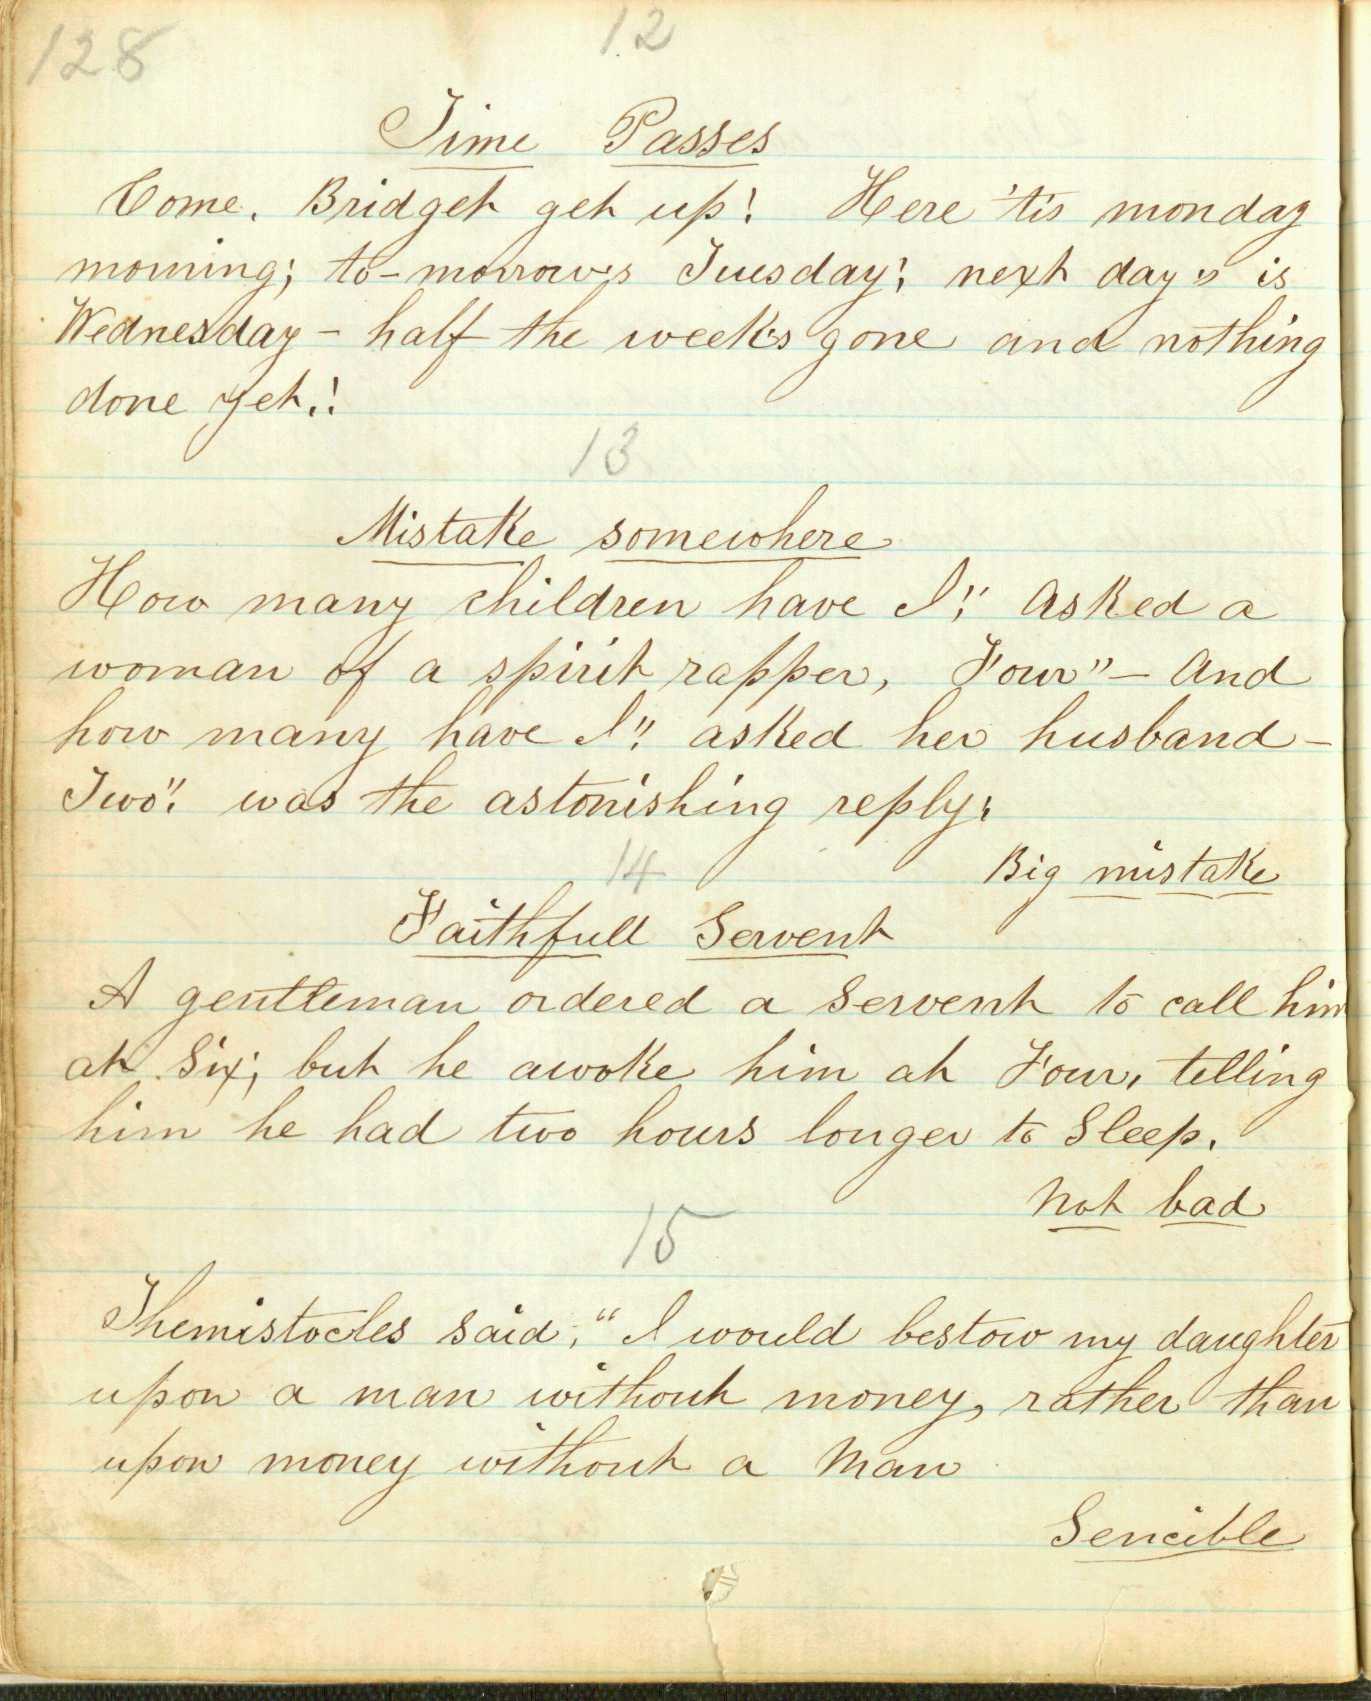 128
12
Time Passes
Come. Bridget get up! Here 'tis monday
morning; to-morrow's Tuesday; next day" is
Wednesday - half the week's gone and nothing
done yet.!
13
Mistake somewhere
How many children have I;" asked a
woman of a spirit rapper, Four" - And
how many have I". asked her husband -
Two". was the astonishing reply;
Big mistake
14
Faithfull Servent
A gentleman ordered a Servent to call him
at Six; but he awoke him at Four, telling
him he had two hours longer to Sleep.
Not bad
15
Themistocles said; "I would bestow my daughter
upon a man without money, rather than
upon money without a Man
Sencible